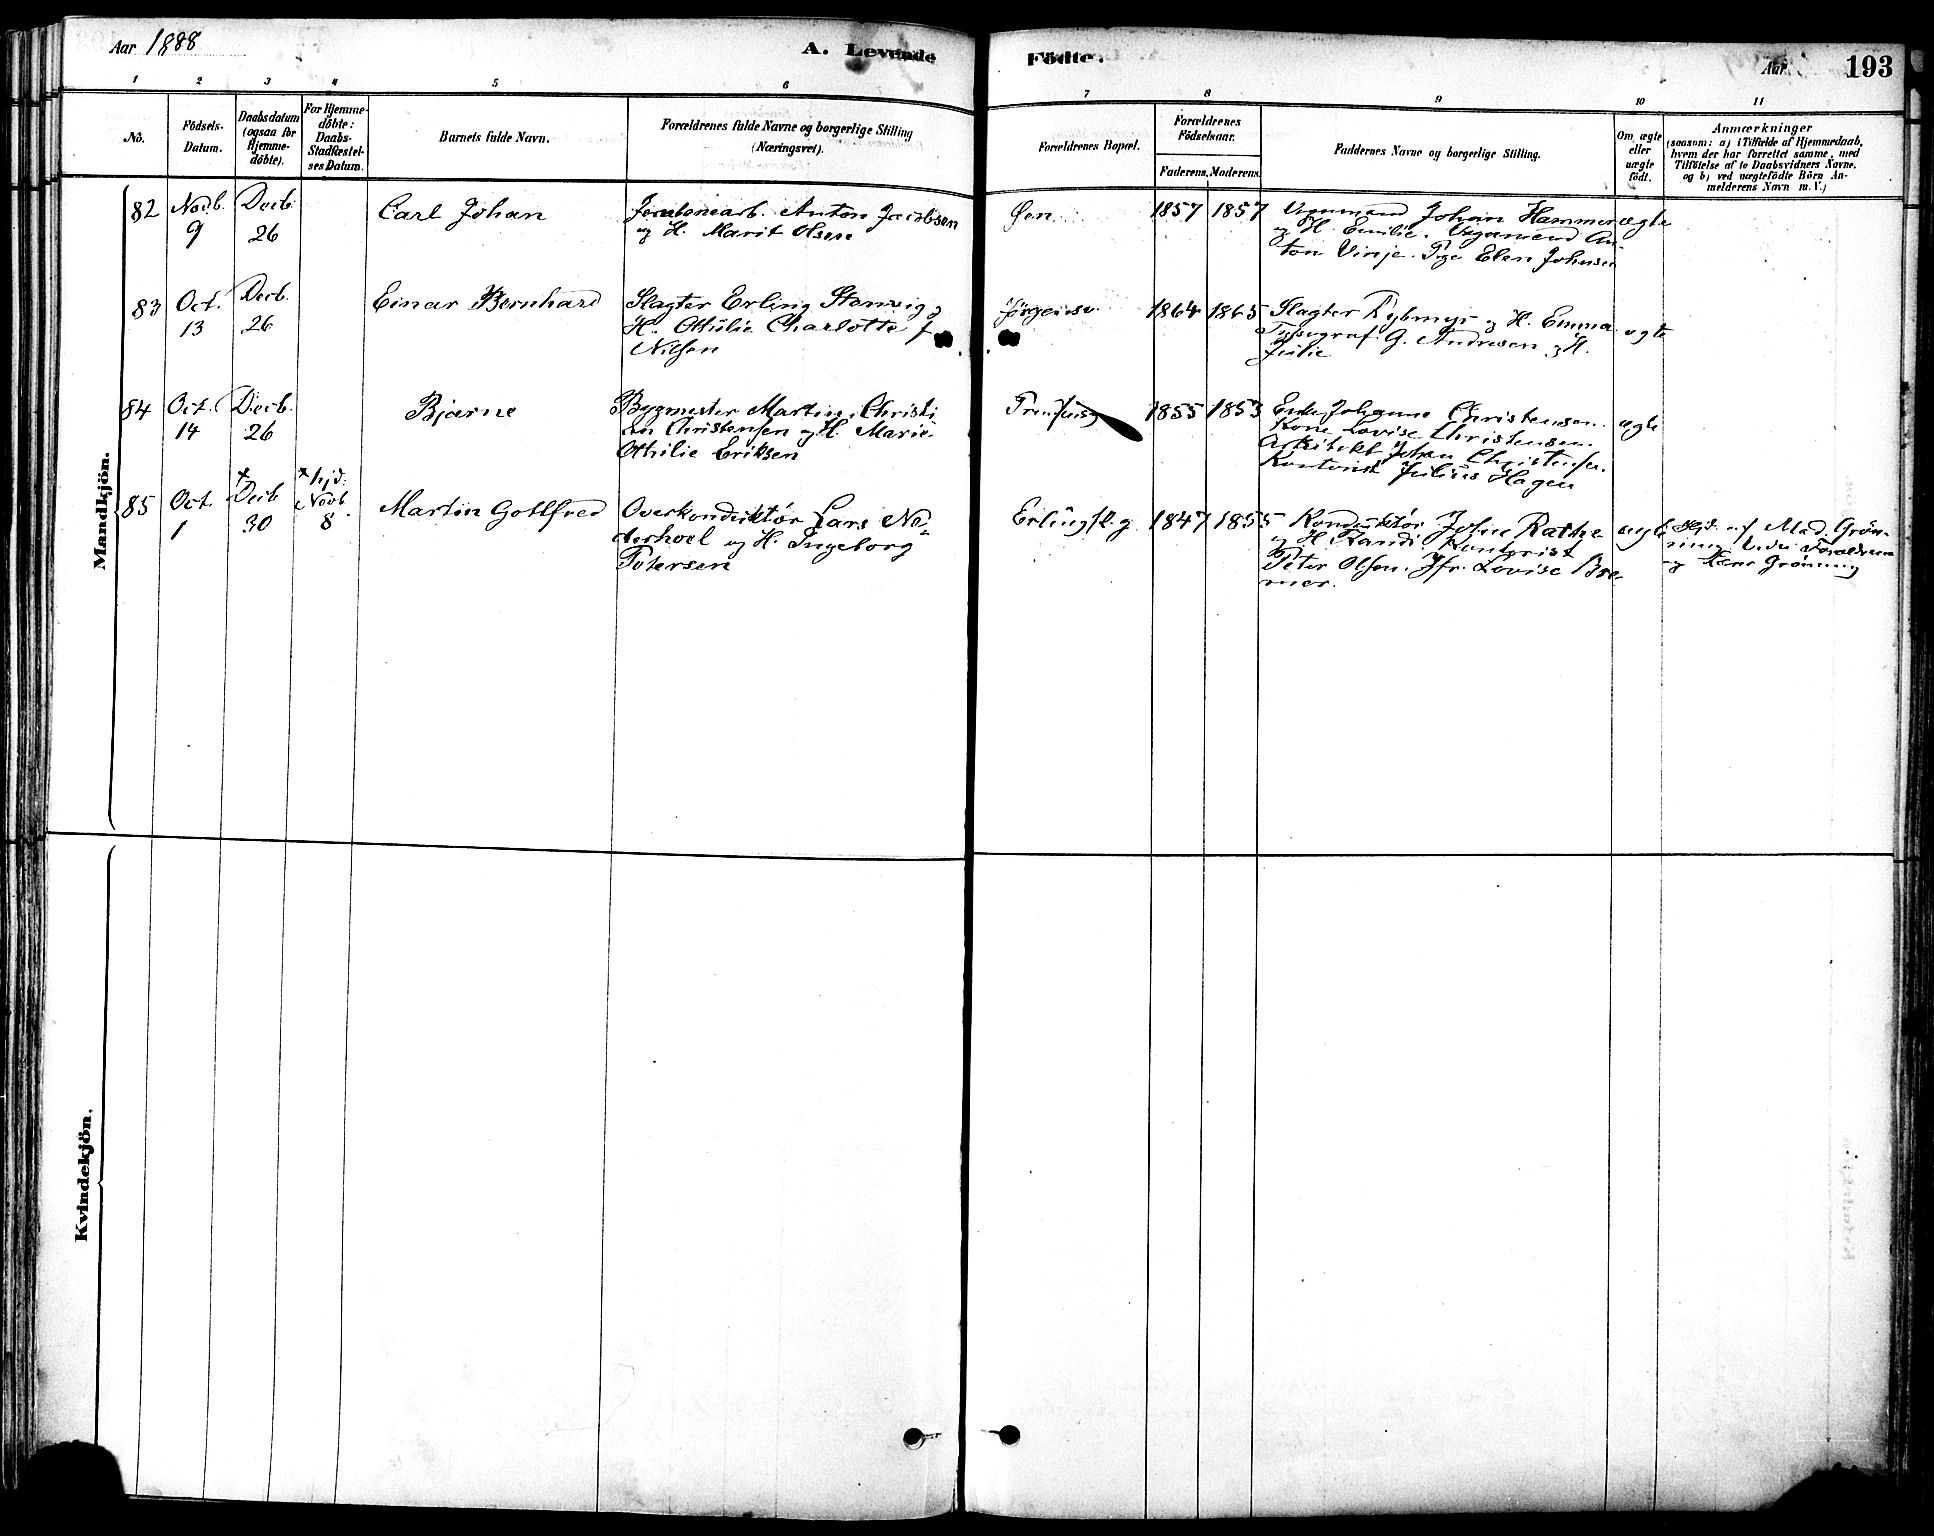 Aar 1888
A. Levende
Födte.
Aar
193
1 2 3 4 5 6 7 8 9 10 11
No.
Födsels-
Datum.
Daabsdatum
(ogsaa for
Hjemme-
döbte).
For Hjemme-
döbte:
Daabs-
Stadfæstel-
ses Datum.
Barnets fulde Navn.
Forældrenes fulde Navne og borgerlige Stilling
(Næringsvei).
Forældrenes Bopæl.
Forældrenes
Födselsaar.
Faderens. Moderens.
Faddernes Navne og borgerlige Stilling.
Om ægte
eller
uægte
födt.
Anmærkninger
(saasom: a) i Tilfælde af Hjemmedaab,
hvem der har forrettet samme, med
Tilföielse af to Daabsvidners Navne,
og b) ved uægtefödte Börn An-
melderens Navn m. V.)
Mandkjön.
82
Novb.
9
Decb.
26
Carl Johan
Anton Jacobsen
og H. Marit Olsen
Øen
1857 1857
Johan Hammer
og H. Emilie. Vognmand An-
ton Vinje. Pige Elen Johnsen
ægte
83
Oct.
13
Decb.
26
Einar Bernhard
Slagter Erling Stenvig og
H. Othilie Charlotte f
Nilsen
1864 1865
Slagter og H. Emma
G. Andresen og H.
Julie
ægte
84
Oct.
14
Decb.
26
Bjarne
Bygmester Martin Christi
an Christensen og H. Marie
Othilie Eriksen
1855 1853
Enke Johanne Christensen.
Kone Lovise Christensen.
Arkitekt Johan Christensen.
Kontorist Julius Hagen
ægte
85
Oct.
1
× Decb
30
× hjd.
Novb
8
Martin Gotlfred
Overkonduktør Lars Ne-
derhoel og H. Ingeborg
Petersen
Erlingsk. g.
1847 1855
Konduktør John Rathe
og H. Randi. Kontorist
Peter Olsen. Jfr. Lovise Bre-
mer.
ægte
Hjd. af Mad. Grøn-
ning Vidn Forældrene
og Grønning
Kvindekjön.